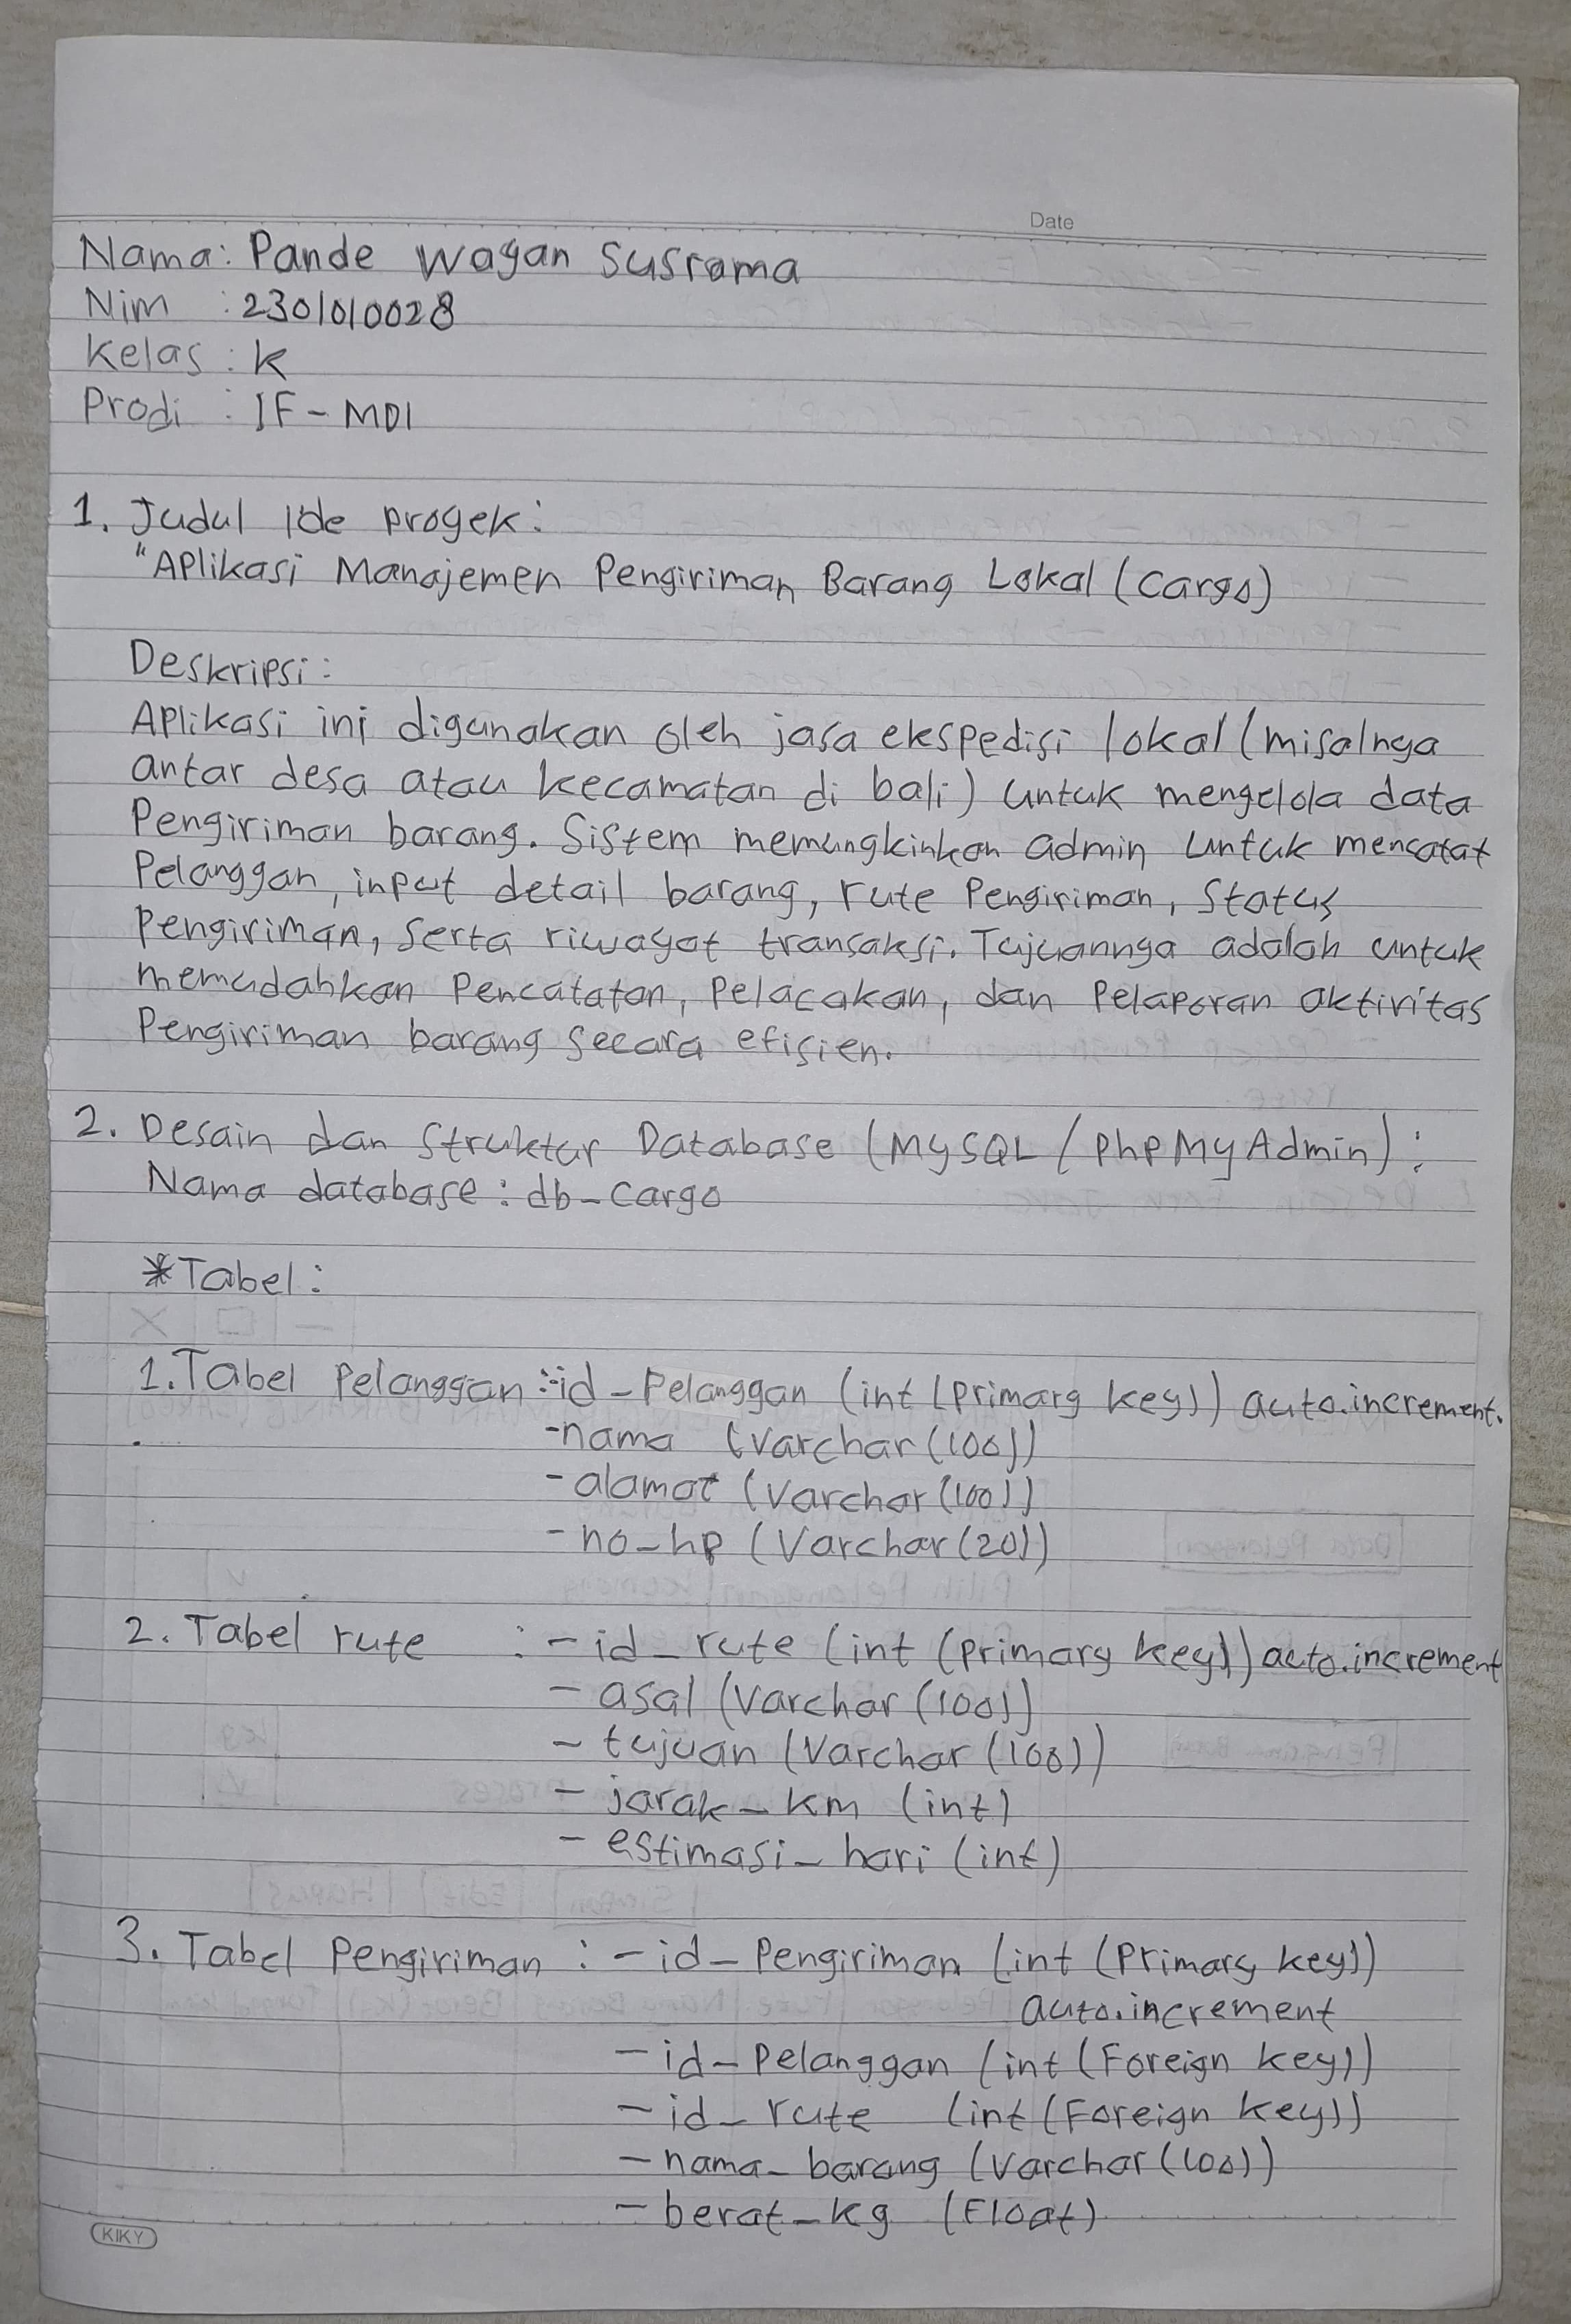 Date
Nama: Pande Wayan Susrama
Nim : 2301010028
Kelas : K
Prodi : IF - MDI
1. Judul Ide proyek:
"Aplikasi Manajemen Pengiriman Barang Lokal (Cargo)
Deskripsi:
Aplikasi ini digunakan oleh jasa ekspedisi lokal (misalnya
antar desa atau kecamatan di bali) untuk mengelola data
Pengiriman barang. Sistem memungkinkan admin untuk mencatat
Pelanggan, input detail barang, rute Pengiriman, Status
Pengiriman, Serta riwayat transaksi. Tujuannya adalah untuk
memudahkan Pencatatan, Pelacakan, dan Pelaporan aktivitas
Pengiriman barang secara efisien.
2. Desain dan Struktur Database (MySQL / PhpMyAdmin) :
Nama database : db_Cargo
*Tabel :
1. Tabel Pelanggan :- id_Pelanggan (int (primary key)) auto.increment.
- nama (Varchar (100))
- alamat (Varchar (100))
- no_hp (Varchar (20))
2. Tabel rute : - id_rute (int (primary key)) auto.increment
- asal (Varchar (100))
- tujuan (Varchar (100))
- jarak_km (int)
- estimasi_hari (int)
3. Tabel Pengiriman : - id_Pengiriman (int (Primary key))
auto.increment
- id_Pelanggan (int (Foreign key))
- id_rute (int (Foreign key))
- nama_barang (Varchar (100))
- berat_kg (Float)
KIKY